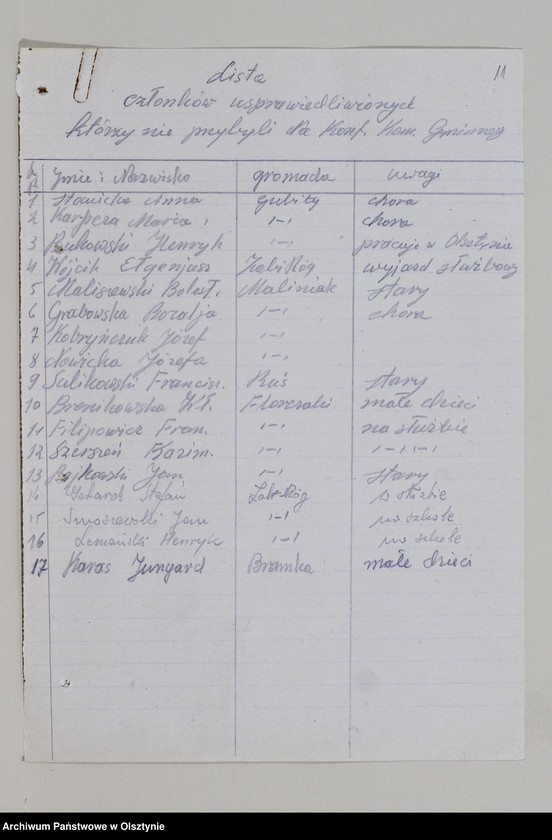 11
Lista
członków usprawiedliwionych
którzy nie przybyli na Konf. Kom. Gminnej
L p Imię i Nazwisko gromada uwagi
1 Stanicka Anna Gubity chora
2 Karpera Maria 1-1 chora
3 Bukowski Henryk 1-1 pracuje w Olsztynie
4 Wójcik Eugeniusz Zabi Róg wyjazd służbowy
5 Maliszewski Bolesł. Maliniak stary
6 Grabowska Rozalja 1-1 chora
7 Kobryńczuk Józef 1-1
8 Nowicka Józefa 1-1
9 Sulikowski Francisz. Ruś stary
10 Bronikowska Wł. Florczaki małe dzieci
11 Filipowicz Fran. 1-1 na służbie
12 Szerszeń Kazim. 1-1 1-1 1-1
13 Bojkowski Jan 1-1 stary
14 Stefan Żabi-Róg w służbie
15 Jan 1-1 w szkole
16 Lemański Henryk 1-1 w szkole
17 Karas Jungard Bramka małe dzieci
Archiwum Państwowe w Olsztynie